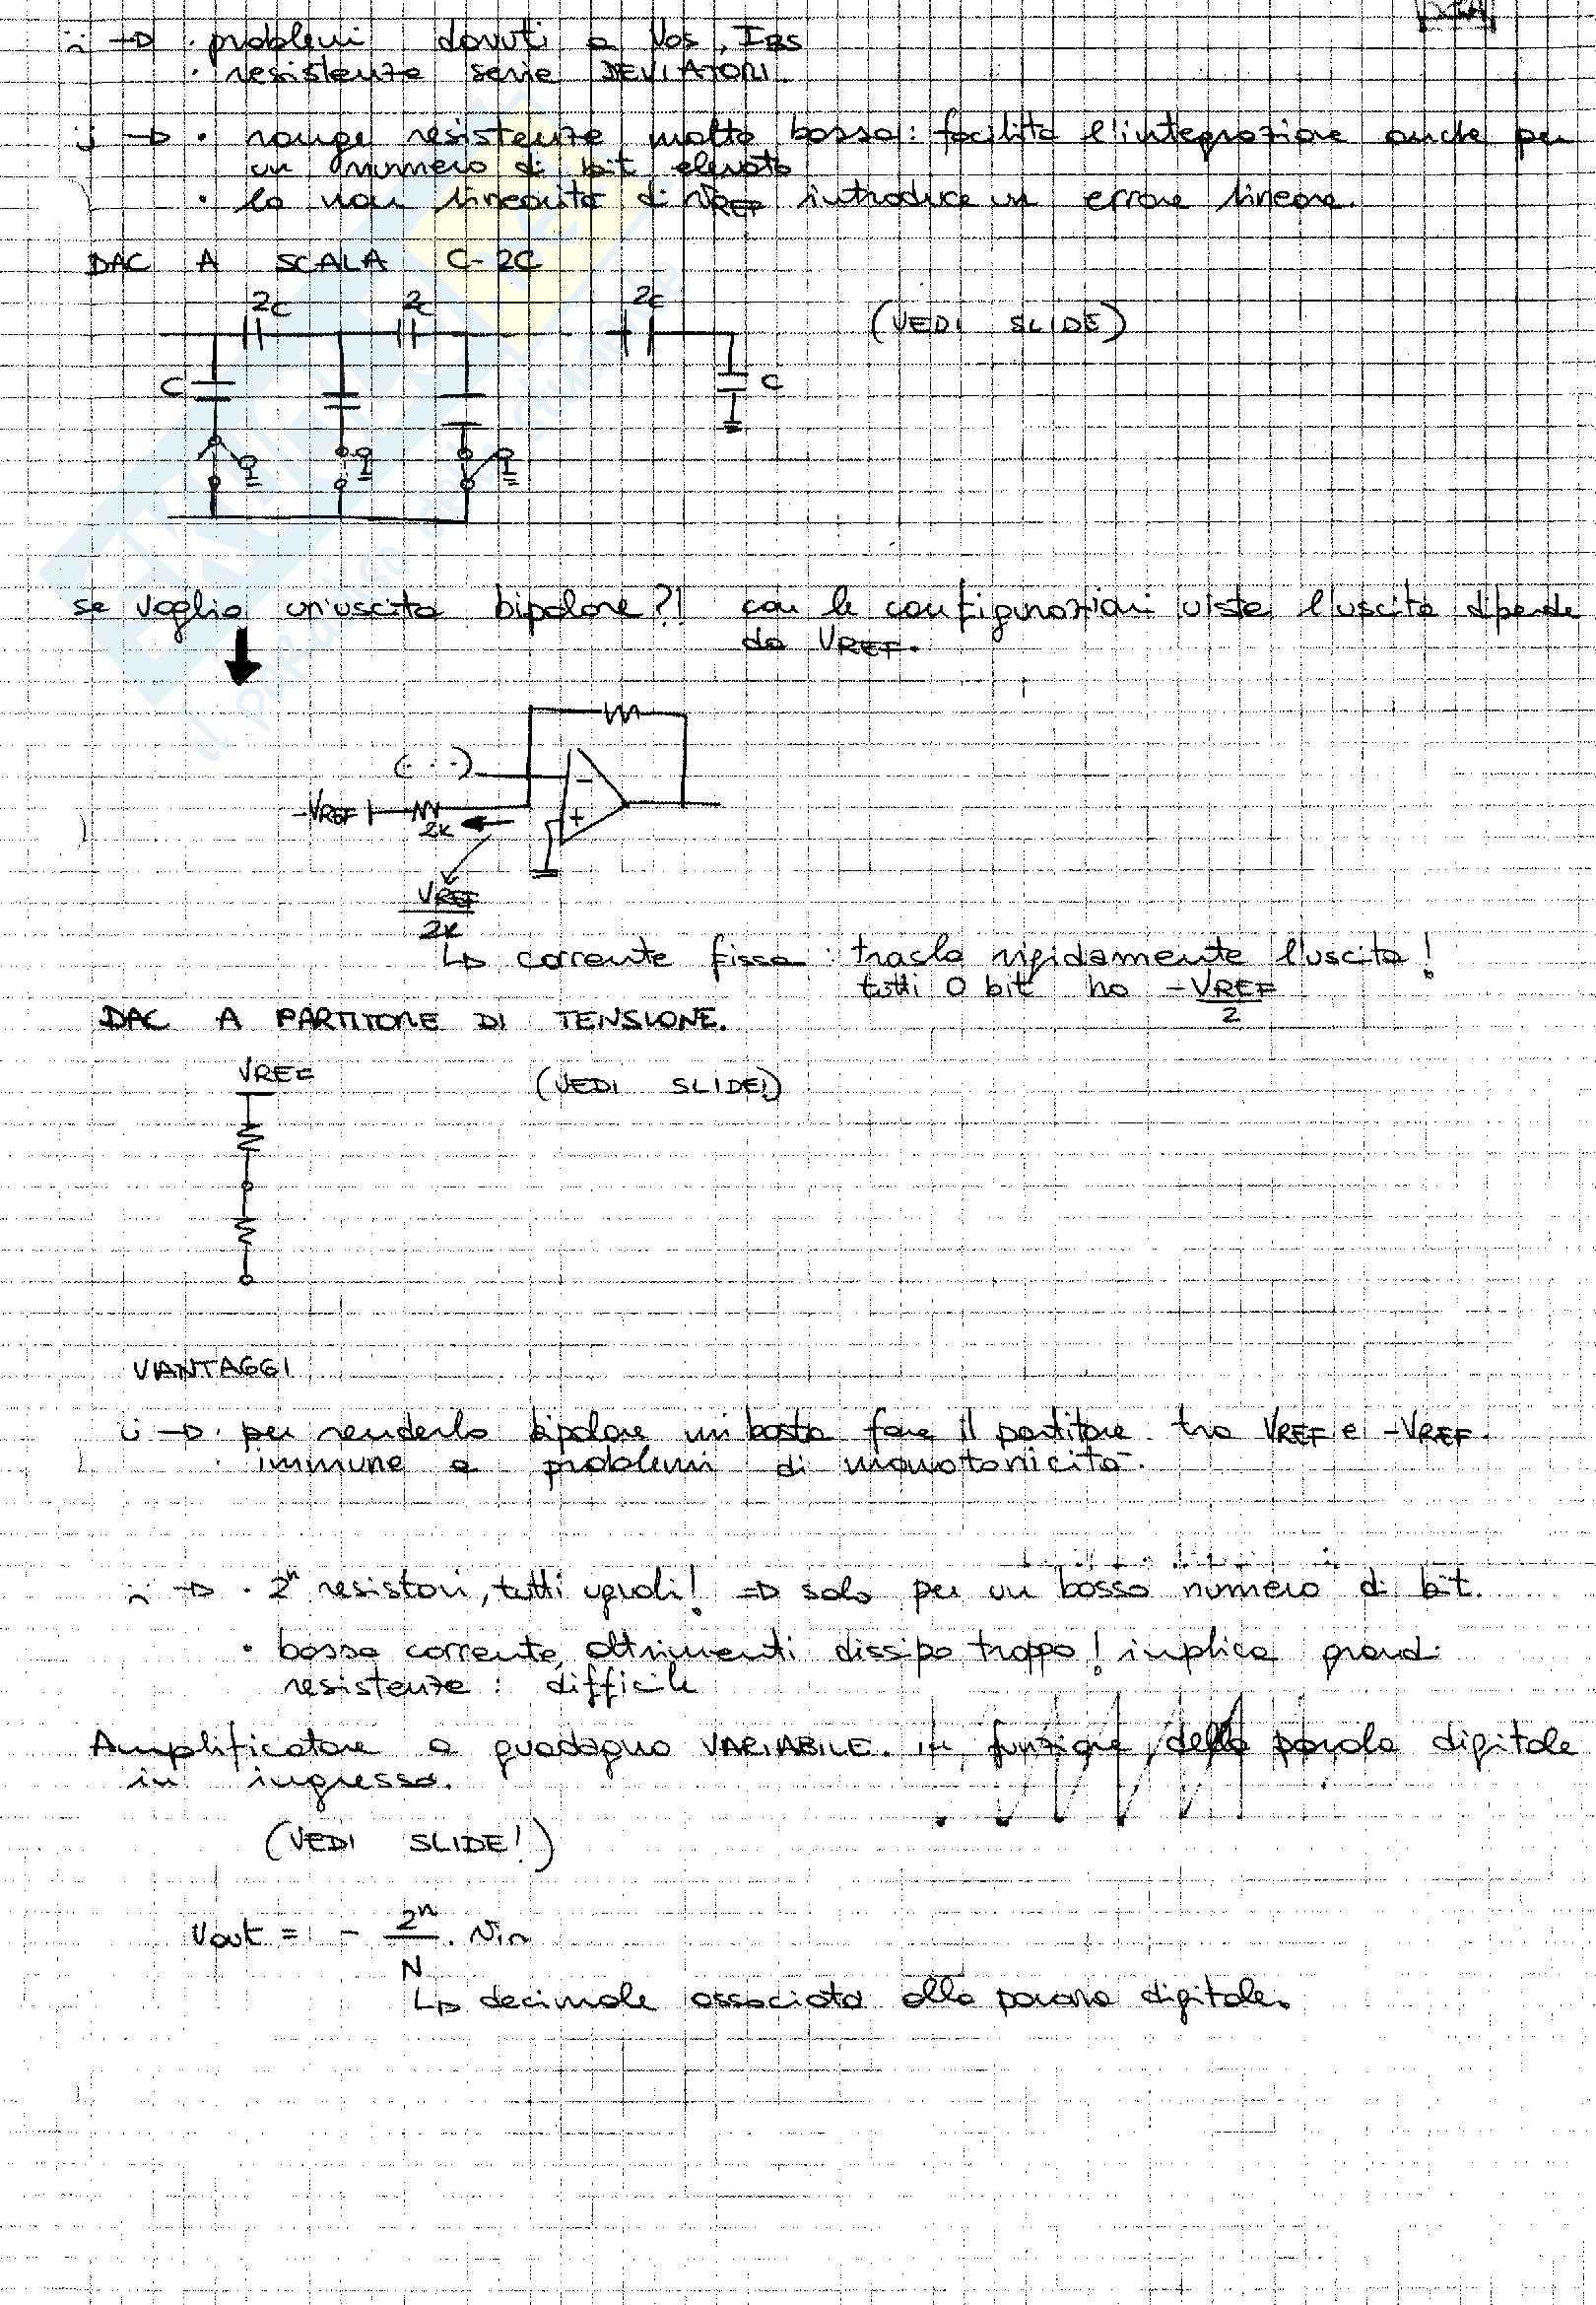 :( → · problemi dovuti a Vos, IBS
· resistenze serie DEVIATORI.
:) → · range resistenze molto basso: facilita l'integrazione anche per
un numero di bit elevato
· la non linearità di VREF introduce un errore lineare.
DAC A SCALA C-2C
2C 2C 2C
(VEDI SLIDE)
C C
se voglio un'uscita bipolare?! con le configurazioni viste l'uscita dipende
da VREF.
(...) -
-VREF 2R +
VREF
2R
↳ corrente fissa: trasla rigidamente l'uscita!
tutti 0 bit ho -VREF/2
DAC A PARTITORE DI TENSIONE.
VREF
(VEDI SLIDE!)
VANTAGGI
:) → · per renderlo bipolare mi basta fare il partitore tra VREF e -VREF.
· immune a problemi di monotonicità.
:( → · 2ⁿ resistori, tutti uguali! ⇒ solo per un basso numero di bit.
· bassa corrente, altrimenti dissipo troppo! implica grandi
resistenze: difficile
Amplificatore a guadagno VARIABILE in funzione della parola digitale
in ingresso.
(VEDI SLIDE!)
Vout = - 2ⁿ/N · Vin
↳ decimale associato alla parola digitale.